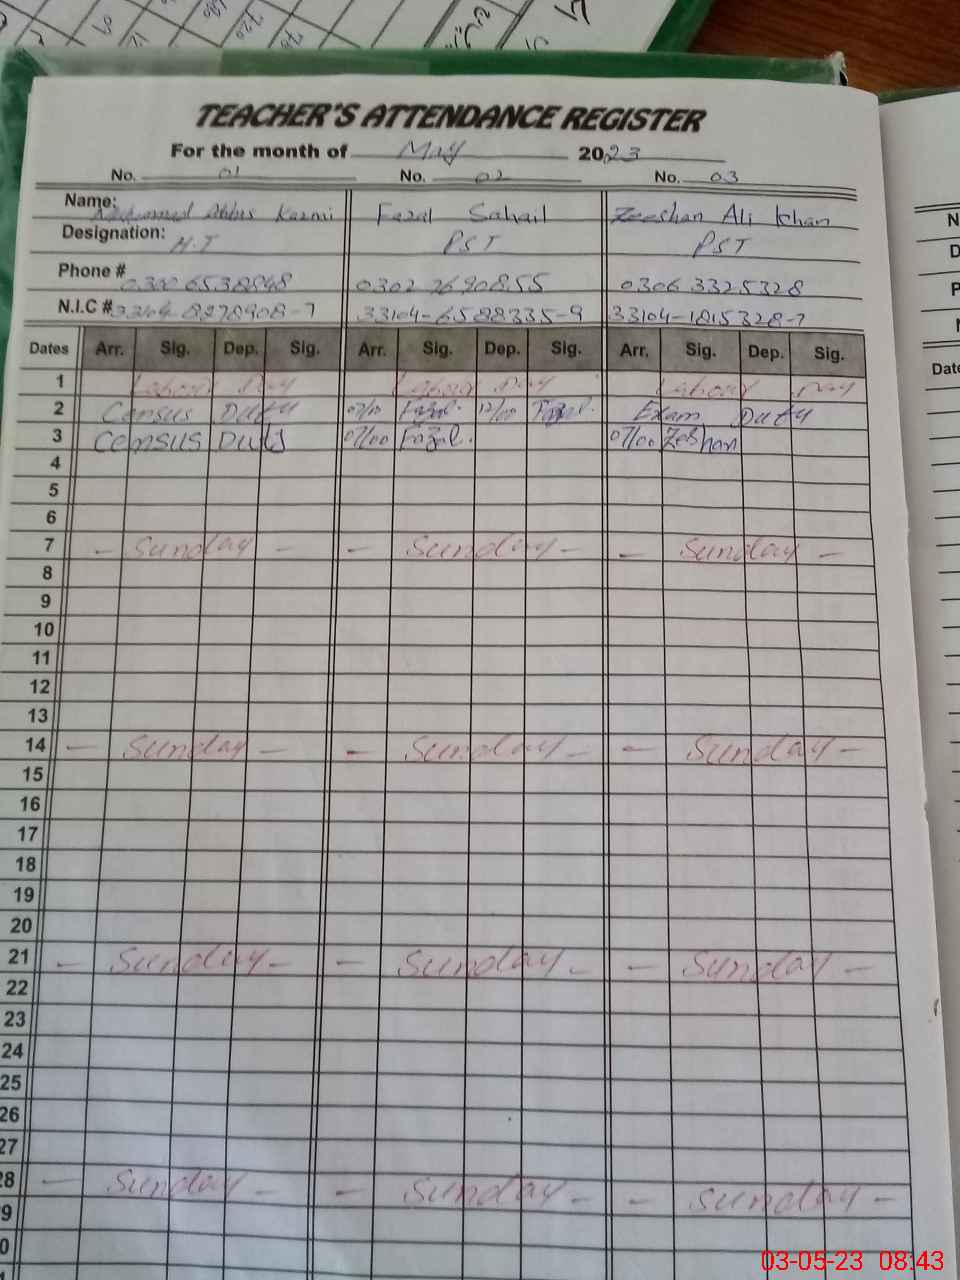 TEACHER'S ATTENDANCE REGISTER
For the month of May 2023
No. 01 No. 02 No. 03
Name: Muhammad Abbas Kazmi Fazal Sahail Zeeshan Ali Khan
Designation: H.T PST PST
Phone # 0302 2690855 0306 3325328
N.I.C # 33104-8278908-7 33104-6588335-9 33104-1815328-7
Dates Arr. Sig. Dep. Sig. Arr. Sig. Dep. Sig. Arr. Sig. Dep. Sig.
1 Labour Day Labour Day Labour Day
2 Census Duty 07/00 Fazal. 12/00 Fazal. Exam Duty
3 Census Duty 07/00 Fazal. 07/00 Zeshan
4
5
6
7 - Sunday - - Sunday - - Sunday -
8
9
10
11
12
13
14 - Sunday - - Sunday - - Sunday -
15
16
17
18
19
20
21 - Sunday - - Sunday - - Sunday -
22
23
24
25
26
27
28 - Sunday - - Sunday - - Sunday -
9
0
03-05-23 08:43